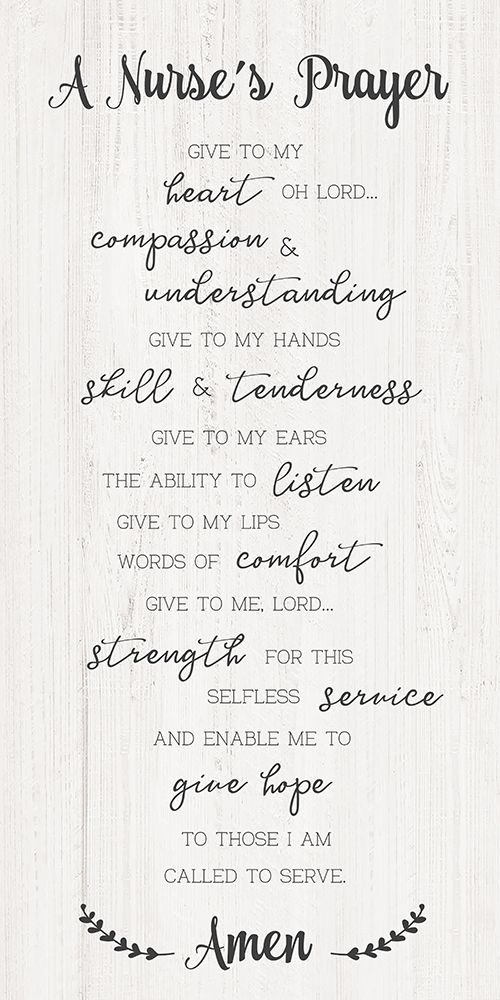 A Nurse's Prayer
GIVE TO MY
heart OH LORD...
compassion &
understanding
GIVE TO MY HANDS
skill & tenderness
GIVE TO MY EARS
THE ABILITY TO listen
GIVE TO MY LIPS
WORDS OF comfort
GIVE TO ME, LORD...
strength FOR THIS
SELFLESS service
AND ENABLE ME TO
give hope
TO THOSE I AM
CALLED TO SERVE.
Amen